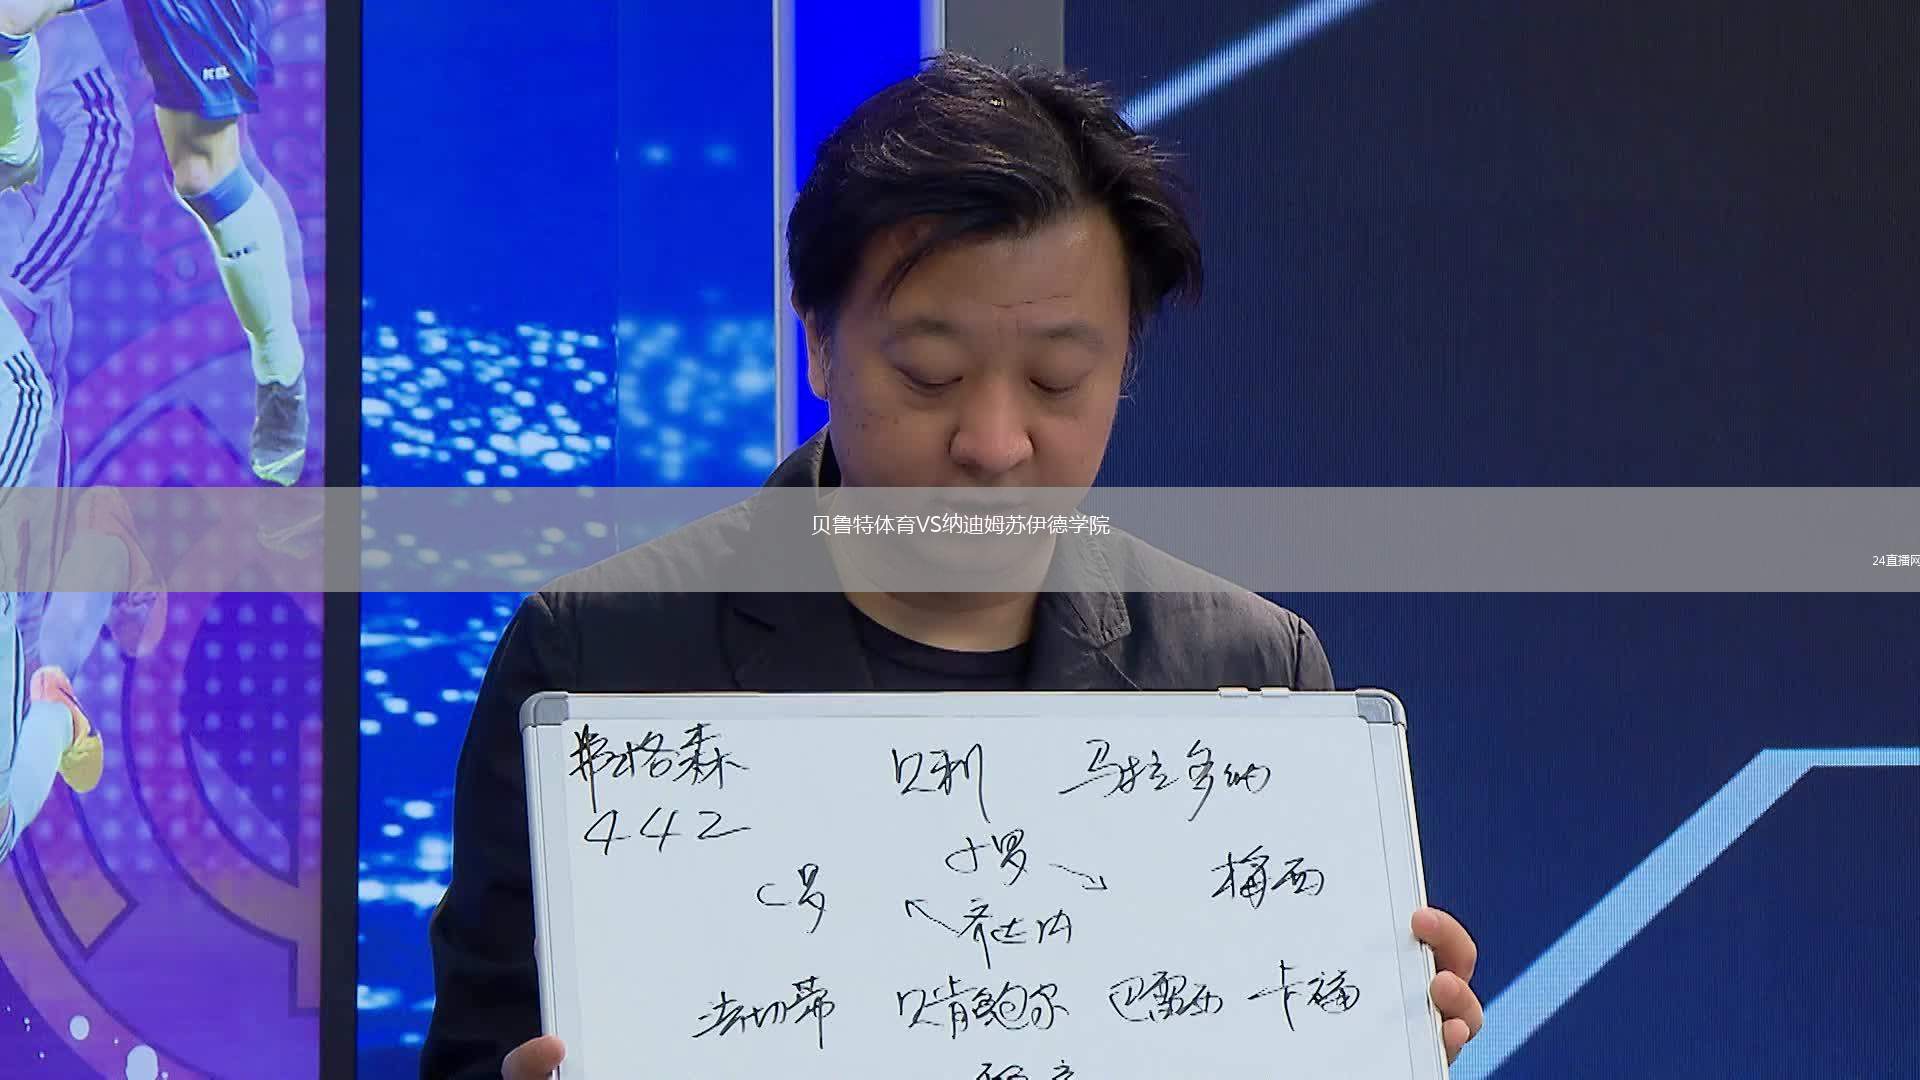 贝鲁特体育VS纳迪姆苏伊德学院
24直播网
弗格森 贝利 马拉多纳
442
小罗
C罗 梅西
齐达内
法切蒂 贝肯鲍尔 巴雷西 卡福